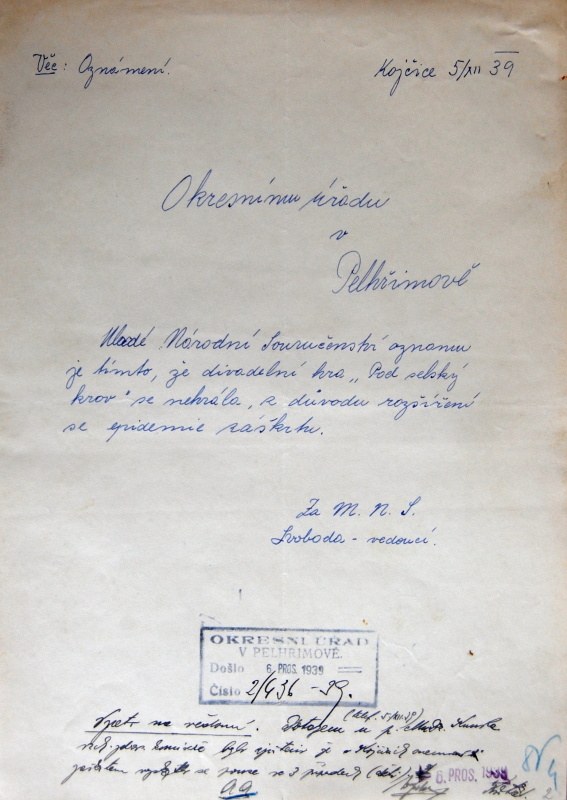 Věc: Oznámení. Kojčice 5/XII 39
Okresnímu úřadu
v
Pelhřimově
Mladé Národní Souručenství oznamu
je tímto, že divadelní hra „Pod selský
krov" se nehrála, z důvodu rozšíření
se epidemie záškrtu.
Za M. N. S.
Svoboda - vedoucí.
OKRESNÍ ÚŘAD
V PELHŘIMOVĚ.
Došlo 6. PROS. 1939
Číslo
(tel. 5/XII.39)
Vzeti na vědomí. Dotazem u p.
bylo zjištěno že v Kojčicích
se pouze
6. PROS. 1939